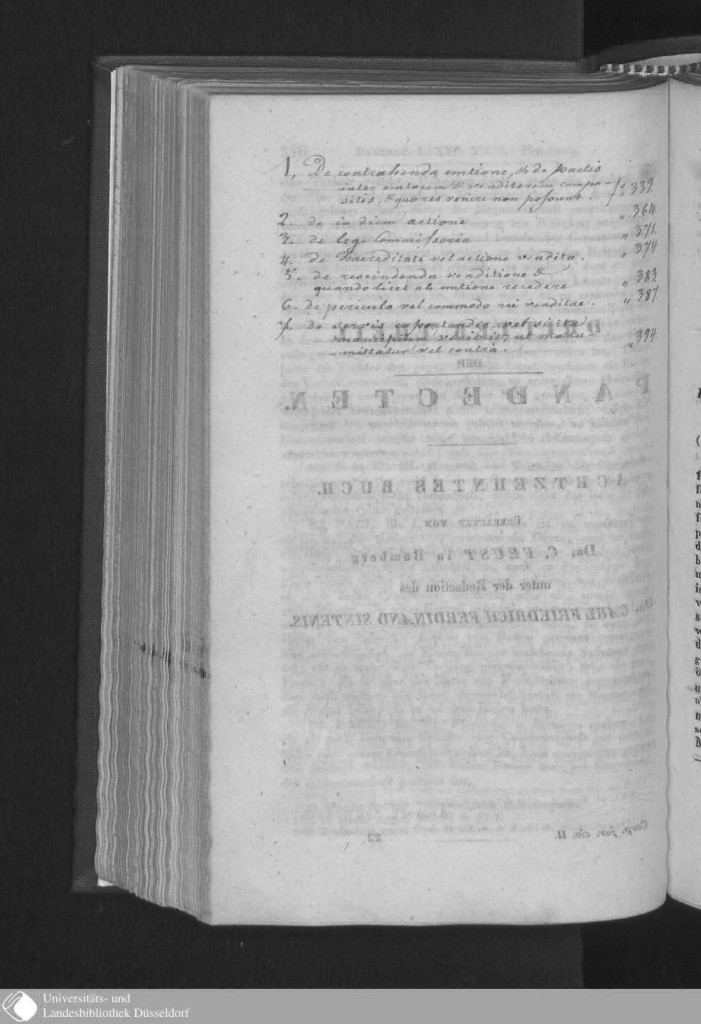 1, De contrahenda emtione, & de pactis
inter emtorem & venditorem compo-
sitis, & quae res venire non possunt. „ 339.
2. de in diem actione „ 364
3. de lege Commissoria „ 371.
4. de haereditate vel actione vendita. „ 374
5. de rescindenda venditione &
quando licet ab emtione recedere „ 383.
6. de periculo vel commodo rei venditae. „ 387.
7. de servis exportandis, vel si ita
mancipium venierit, ut manu-
mittatur vel contra. „ 394.
DER
PANDECTEN.
ACHTZEHNTES BUCH.
UEBERSETZT VON
DR. C. FEUST in Bamberg
unter der Redaction des
DR. CARL FRIEDRICH FERDINAND SINTENIS.
Corp. jur. civ. II. 22
Universitäts- und
Landesbibliothek Düsseldorf